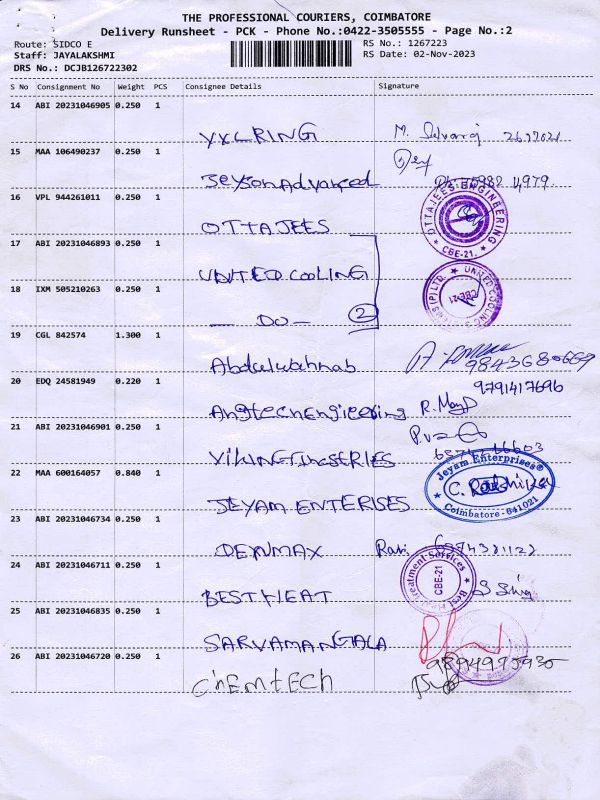 THE PROFESSIONAL COURIERS, COIMBATORE
Delivery Runsheet - PCK - Phone No.:0422-3505555 - Page No.:2
Route: SIDCO E RS No.: 1267223
Staff: JAYALAKSHMI RS Date: 02-Nov-2023
DRS No.: DCJB126722302
S No Consignment No Weight PCS Consignee Details Signature
14 ABI 20231046905 0.250 1
VXLRING M. Selvaraj
15 MAA 106490237 0.250 1
Jeyson Advanced
16 VPL 944261011 0.250 1
OTTAJEES OTTAJEES ENGINEERING CBE-21.
17 ABI 20231046893 0.250 1
UNITED COOLING
18 IXM 505210263 0.250 1
— DO — 2 UNITED COOLING (P) LTD. CBE-21
19 CGL 842574 1.300 1
Abdulwahhab 9843680669
20 EDQ 24581949 0.220 1 9791417696
Angtech Engieering R.
21 ABI 20231046901 0.250 1
VIKING INdSTRIES
22 MAA 600164057 0.840 1 Jeyam Enterprises
JEYAM ENTERISES C. Coimbatore - 641021
23 ABI 20231046734 0.250 1
DENMAX Ravi
24 ABI 20231046711 0.250 1 Best Heat Treatment Services CBE-21
BEST HEAT
25 ABI 20231046835 0.250 1
SARVAMANGALA
26 ABI 20231046720 0.250 1 9894975935
CHEMTECH